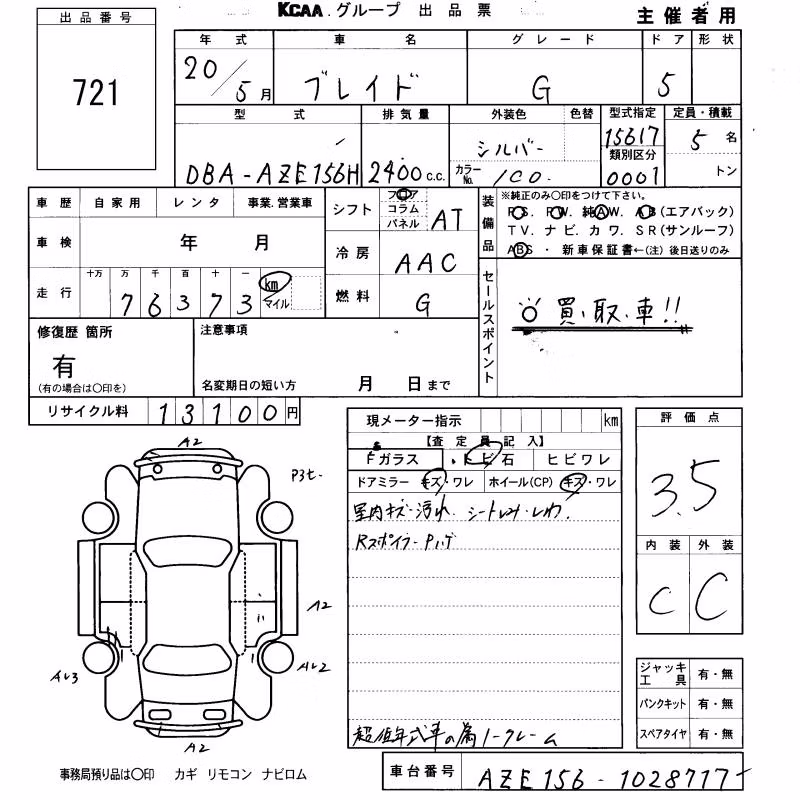 KCAA グループ 出品票
主催者用
出品番号
721
年式 車名 グレード ドア 形状
20/5月 ブレイド G 5
型式 排気量 外装色 色替 型式指定 定員・積載
DBA-AZE156H 2400c.c. シルバー 15617 5名
カラーNo. 1C0. 類別区分 0001 トン
車歴 自家用 レンタ 事業.営業車
車検 年 月
走行 十万 万 千 百 十 一
76373 km マイル
シフト フロア コラム パネル AT
冷房 AAC
燃料 G
装備品 ※純正のみ〇印をつけて下さい。
P.S. P.W. 純A.W. A.B(エアバック)
T.V. ナビ. カワ. S.R(サンルーフ)
ABS ・ 新車保証書←(注) 後日送りのみ
セールスポイント
◎ 買.取.車!!
修復歴 箇所
有
(有の場合は〇印を)
注意事項
名変期日の短い方 月 日まで
リサイクル料 13100円
現メーター指示 km
【査定員記入】
Fガラス ・トビ石 ヒビワレ
ドアミラー キズ・ワレ ホイール(CP) キズ・ワレ
室内キズ・汚れ. シート
RスポイラーPハゲ
超低年式車の為ノークレーム
評価点
3.5
内装 外装
C C
ジャッキ工具 有・無
パンクキット 有・無
スペアタイヤ 有・無
A2
A2
A2
事務局預り品は〇印 カギ リモコン ナビロム
車台番号 AZE156-1028717